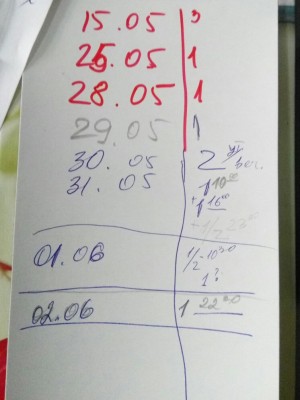 15.05 3
25.05 1
28.05 1
29.05 1
30.05 2
31.05 1 10⁰⁰
+1 16⁰⁰
01.06 1/2-10³⁰
1?
02.06 1 22³⁰